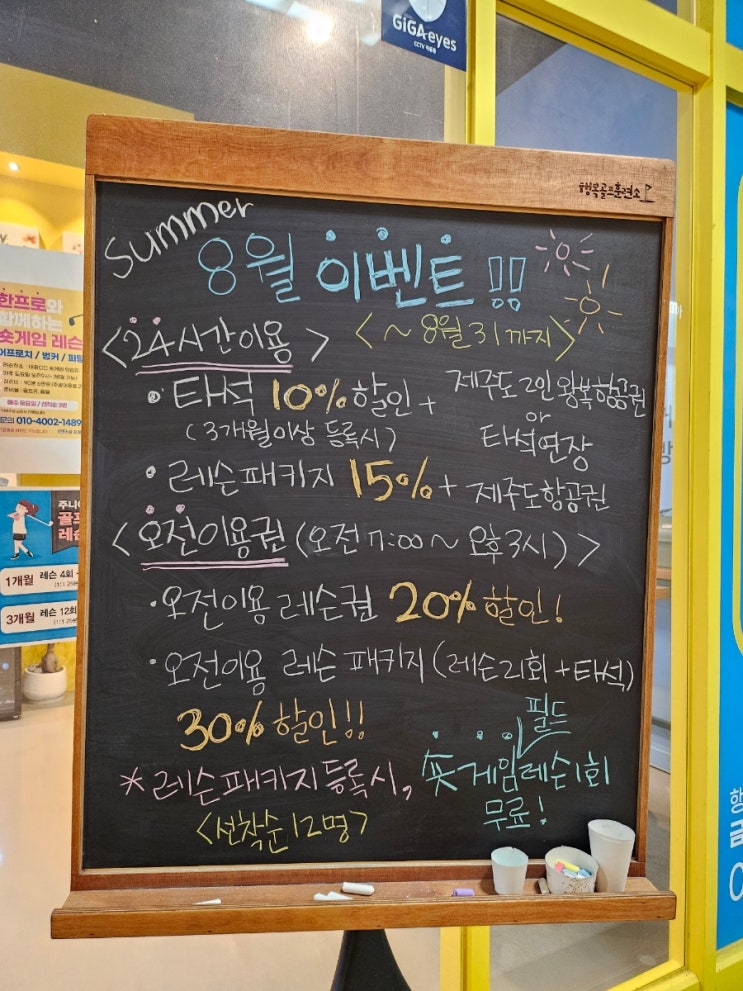 GiGAeyes
행복골프훈련소
summer
8월 이벤트 !!
<24시간이용> <~8월31까지>
• 타석 10% 할인 + 제주도 2인 왕복항공권
(3개월이상 등록시) or
타석연장
• 레슨패키지 15% + 제주도항공권
<오전이용권 (오전 7:00 ~ 오후 3시)>
• 오전이용 레슨권 20% 할인!
• 오전이용 레슨 패키지 (레슨 21회 + 타석)
30% 할인!!
* 레슨패키지등록시, 숏게임 필드 레슨 1회
무료!
<선착순 12명>
한프로와
함께하는
숏게임 레슨
어프로치 / 벙커 / 퍼팅
문의 010-4002-1489
주니어
골프
레슨
1개월 레슨 4회
3개월 레슨 12회